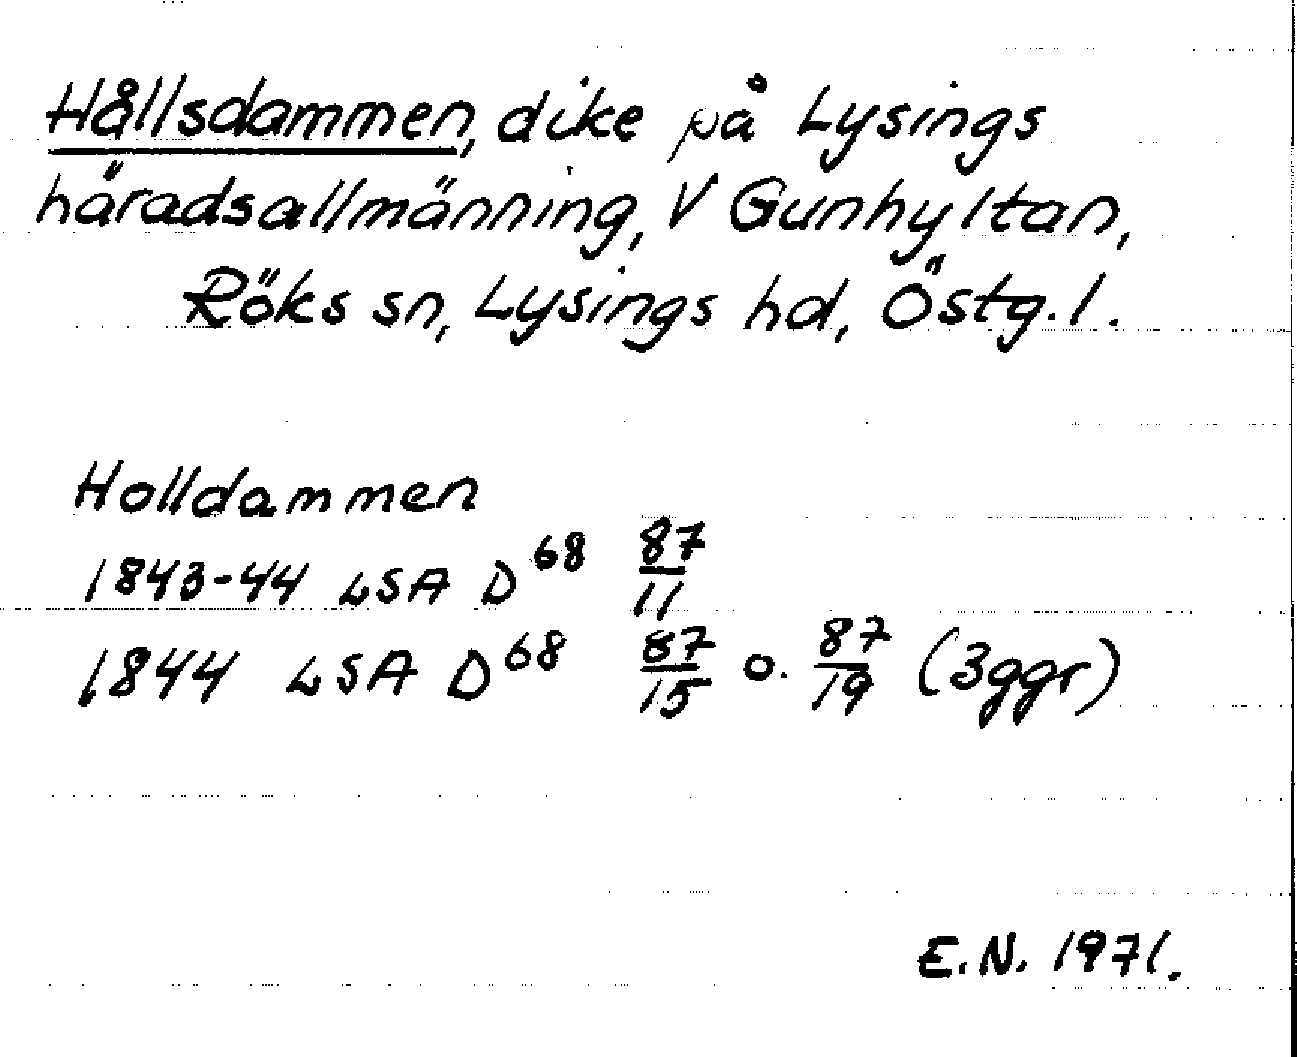 Hållsdammen, dike på Lysings
häradsallmänning, V Gunhyltan,
Röks sn, Lysings hd, Östg.l.
Holldammen
1843-44 LSA D⁶⁸ 87/11
1844 LSA D⁶⁸ 87/15 o. 87/19 (3ggr)
E.N. 1971.